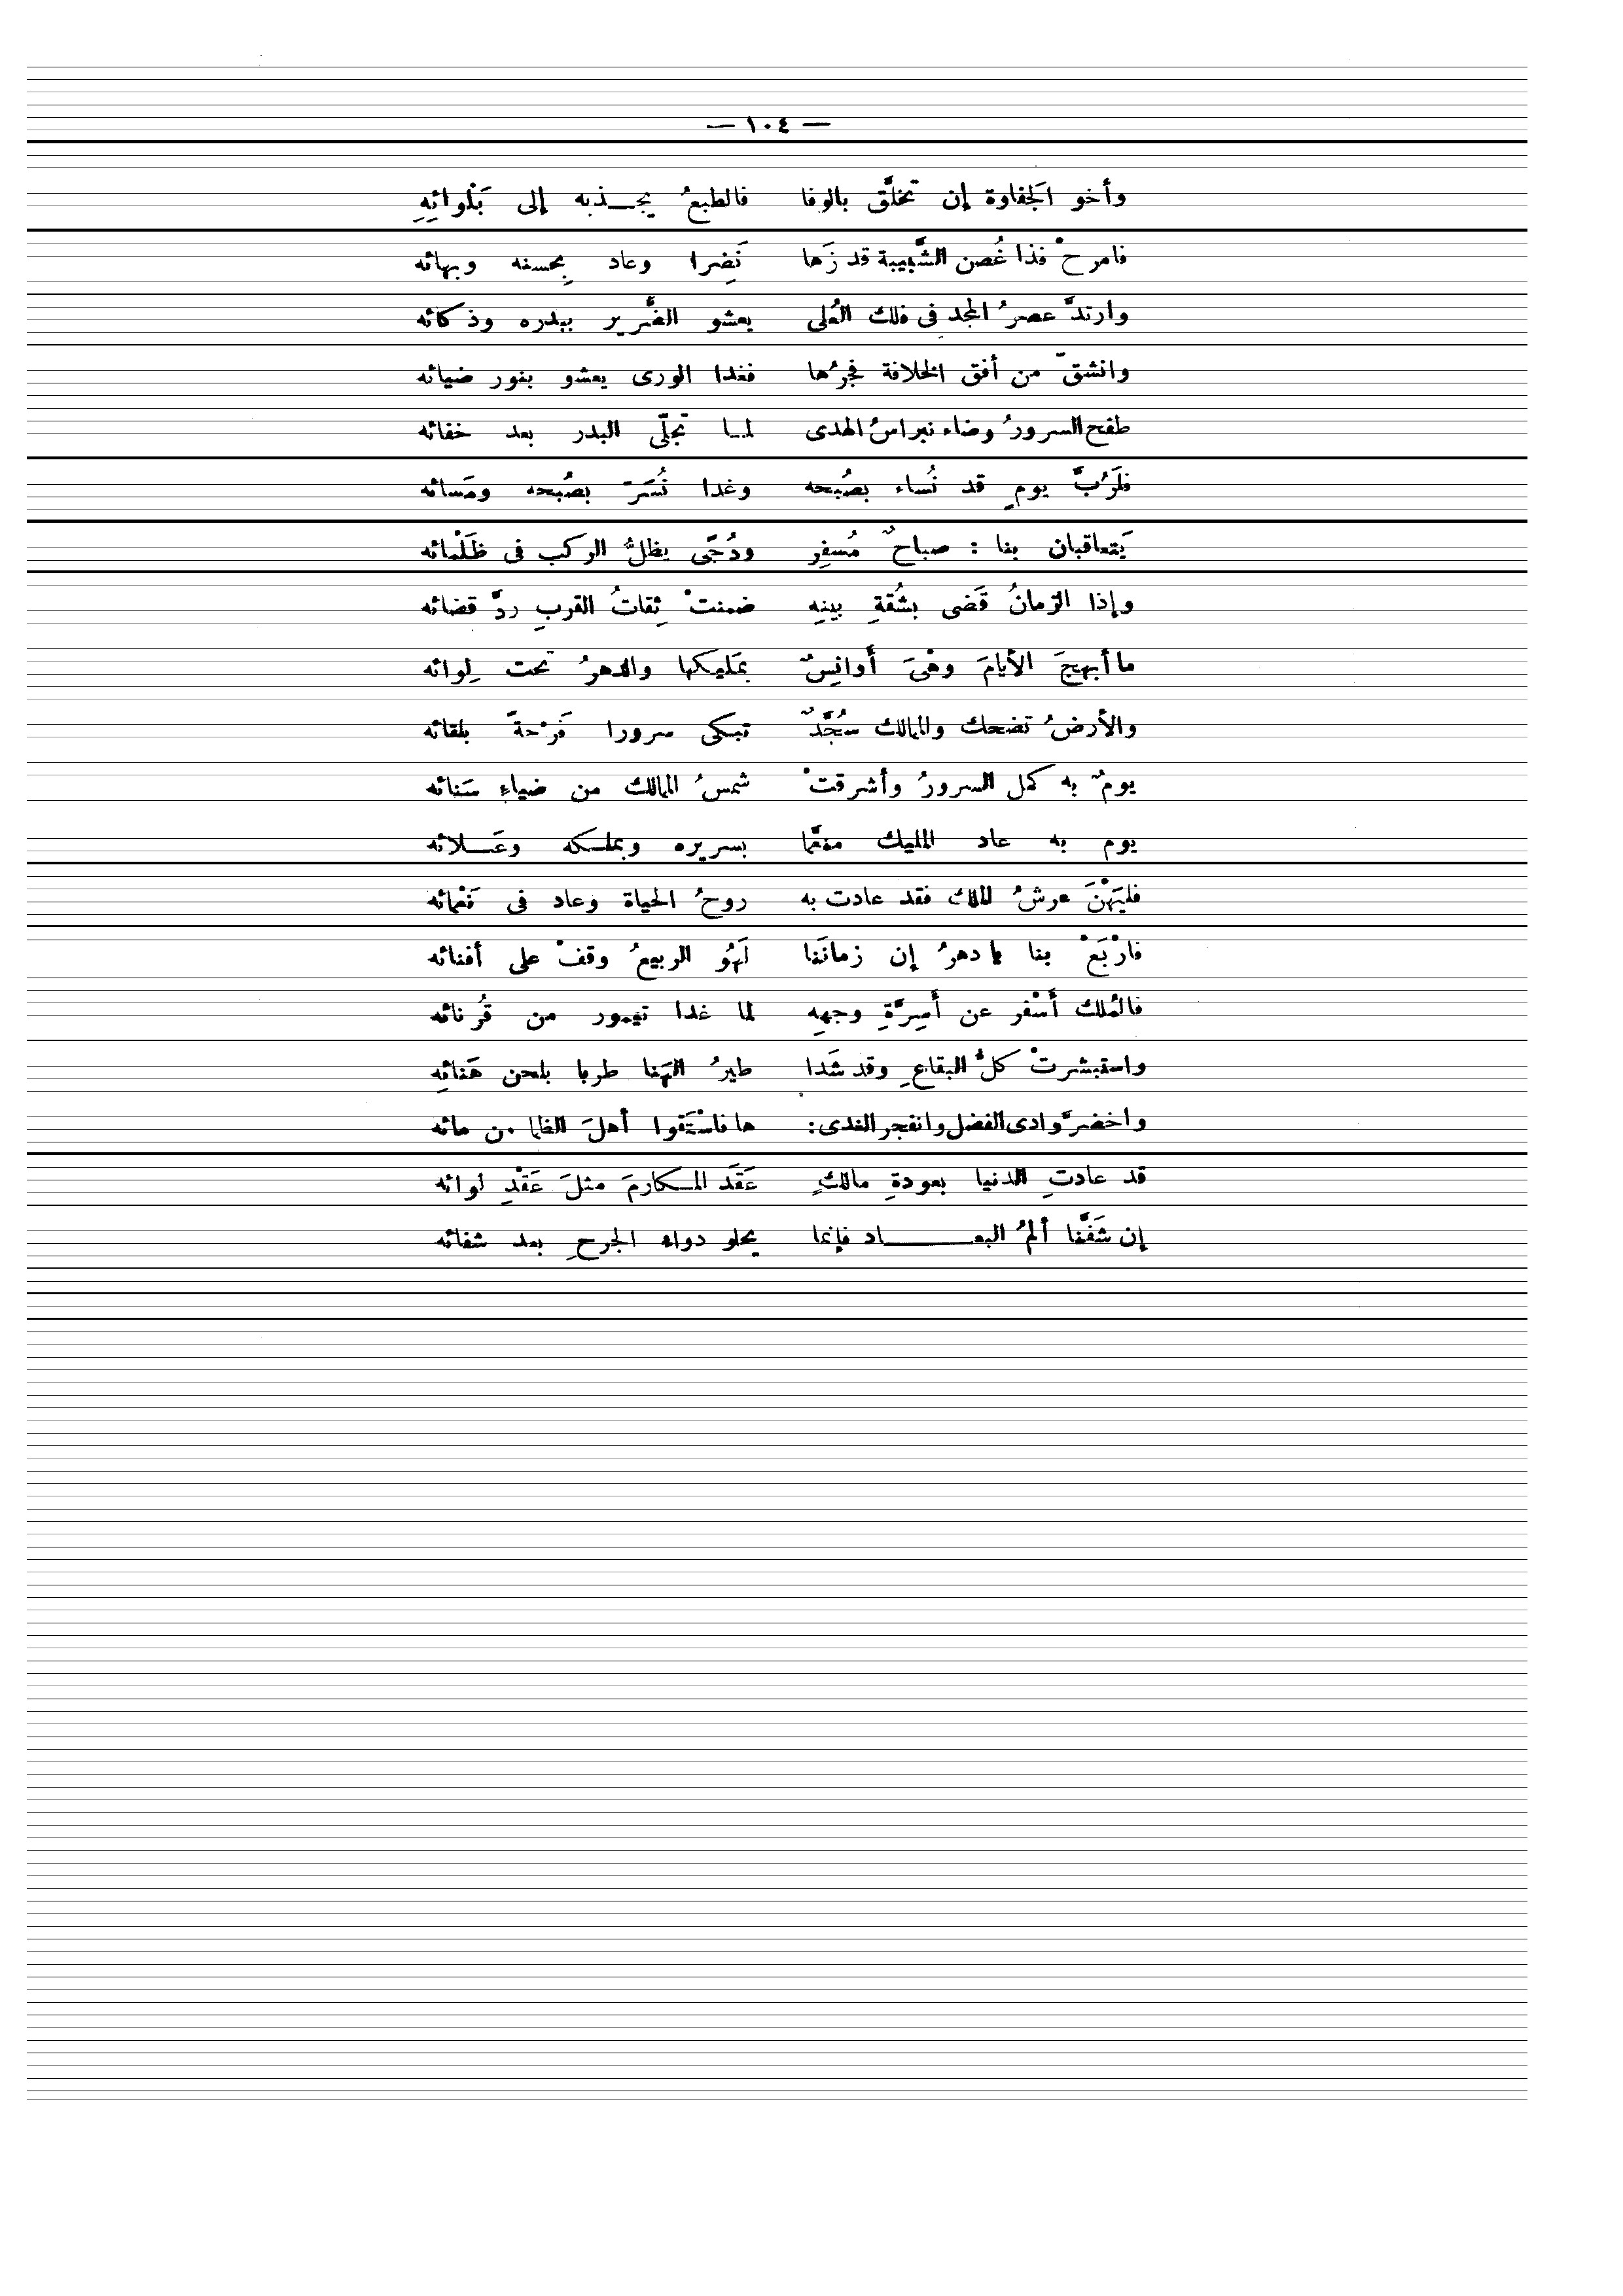 — ١٠٤ —
وأخو الجَفاوة إن تخلَّق بالوفا فالطبعُ يجـــذبه إلى بَلْوائِهِ
فامرحْ فذا غُصن الشَّبيبة قد زَها نَضِرا وعاد بِحسنه وبهائه
وارتدَّ عصرُ المجدِ فى فلك العُلى يعشو الضَّرير ببدره وذكائه
وانشقّ من أفق الخلافة فجرُها فغدا الورى يعشو بنور ضيائه
طفح السرورُ وضاء نبراسُ الهدى لمـا تجلّى البدر بعد خفائه
فلَرُبَّ يومٍ قد نُساء بصُبحه وغدا نُسَرّ بصُبحه ومَسائه
يَتعاقبان بنا : صباحٌ مُسفِر ودُجًى يظلُّ الركب فى ظَلْمائه
وإذا الزمانُ قَضى بشُقةِ بينِه ضمنتْ ثِقاتُ القربِ ردَّ قضائه
ما أبهجَ الأيامَ وهْىَ أَوانِسٌ بمَليكها والدهرُ تحت لِوائه
والأرضُ تضحك والممالك سُجَّدٌ تبكى سرورا فَرْحةً بلقائه
يومٌ به كمل السرورُ وأشرقتْ شمسُ الممالك من ضياءِ سَنائه
يوم به عاد المليك منعَّما بسريره وبملـكه وعَــلائه
فليَهْنَ عرشُ الملك فقد عادت به روحُ الحياة وعاد فى نَعْمائه
فارْبَعْ بنا يا دهرُ إن زمانَنا لهَوُ الربيعُ وقفْ على أفنائه
فالمُلك أَسْفر عن أَسِرَّةِ وجههِ لما غدا تيمور من قُرنائه
واستبشرتْ كلُّ البقاعِ وقد شَدا طيرُ الهَنا طربا بلحن هَنائِه
واخضرَّ وادى الفضل وانفجر الندى : ها فاسْتَقوا أهلَ الظما من مائه
قد عادتِ الدنيا بعودةِ مالكٍ عَقَد المـكارمَ مثلَ عَقْدِ لوائه
إن شَفَّنا ألمُ البعـــــــاد فإنما يحلو دواء الجرحِ بعد شفائه